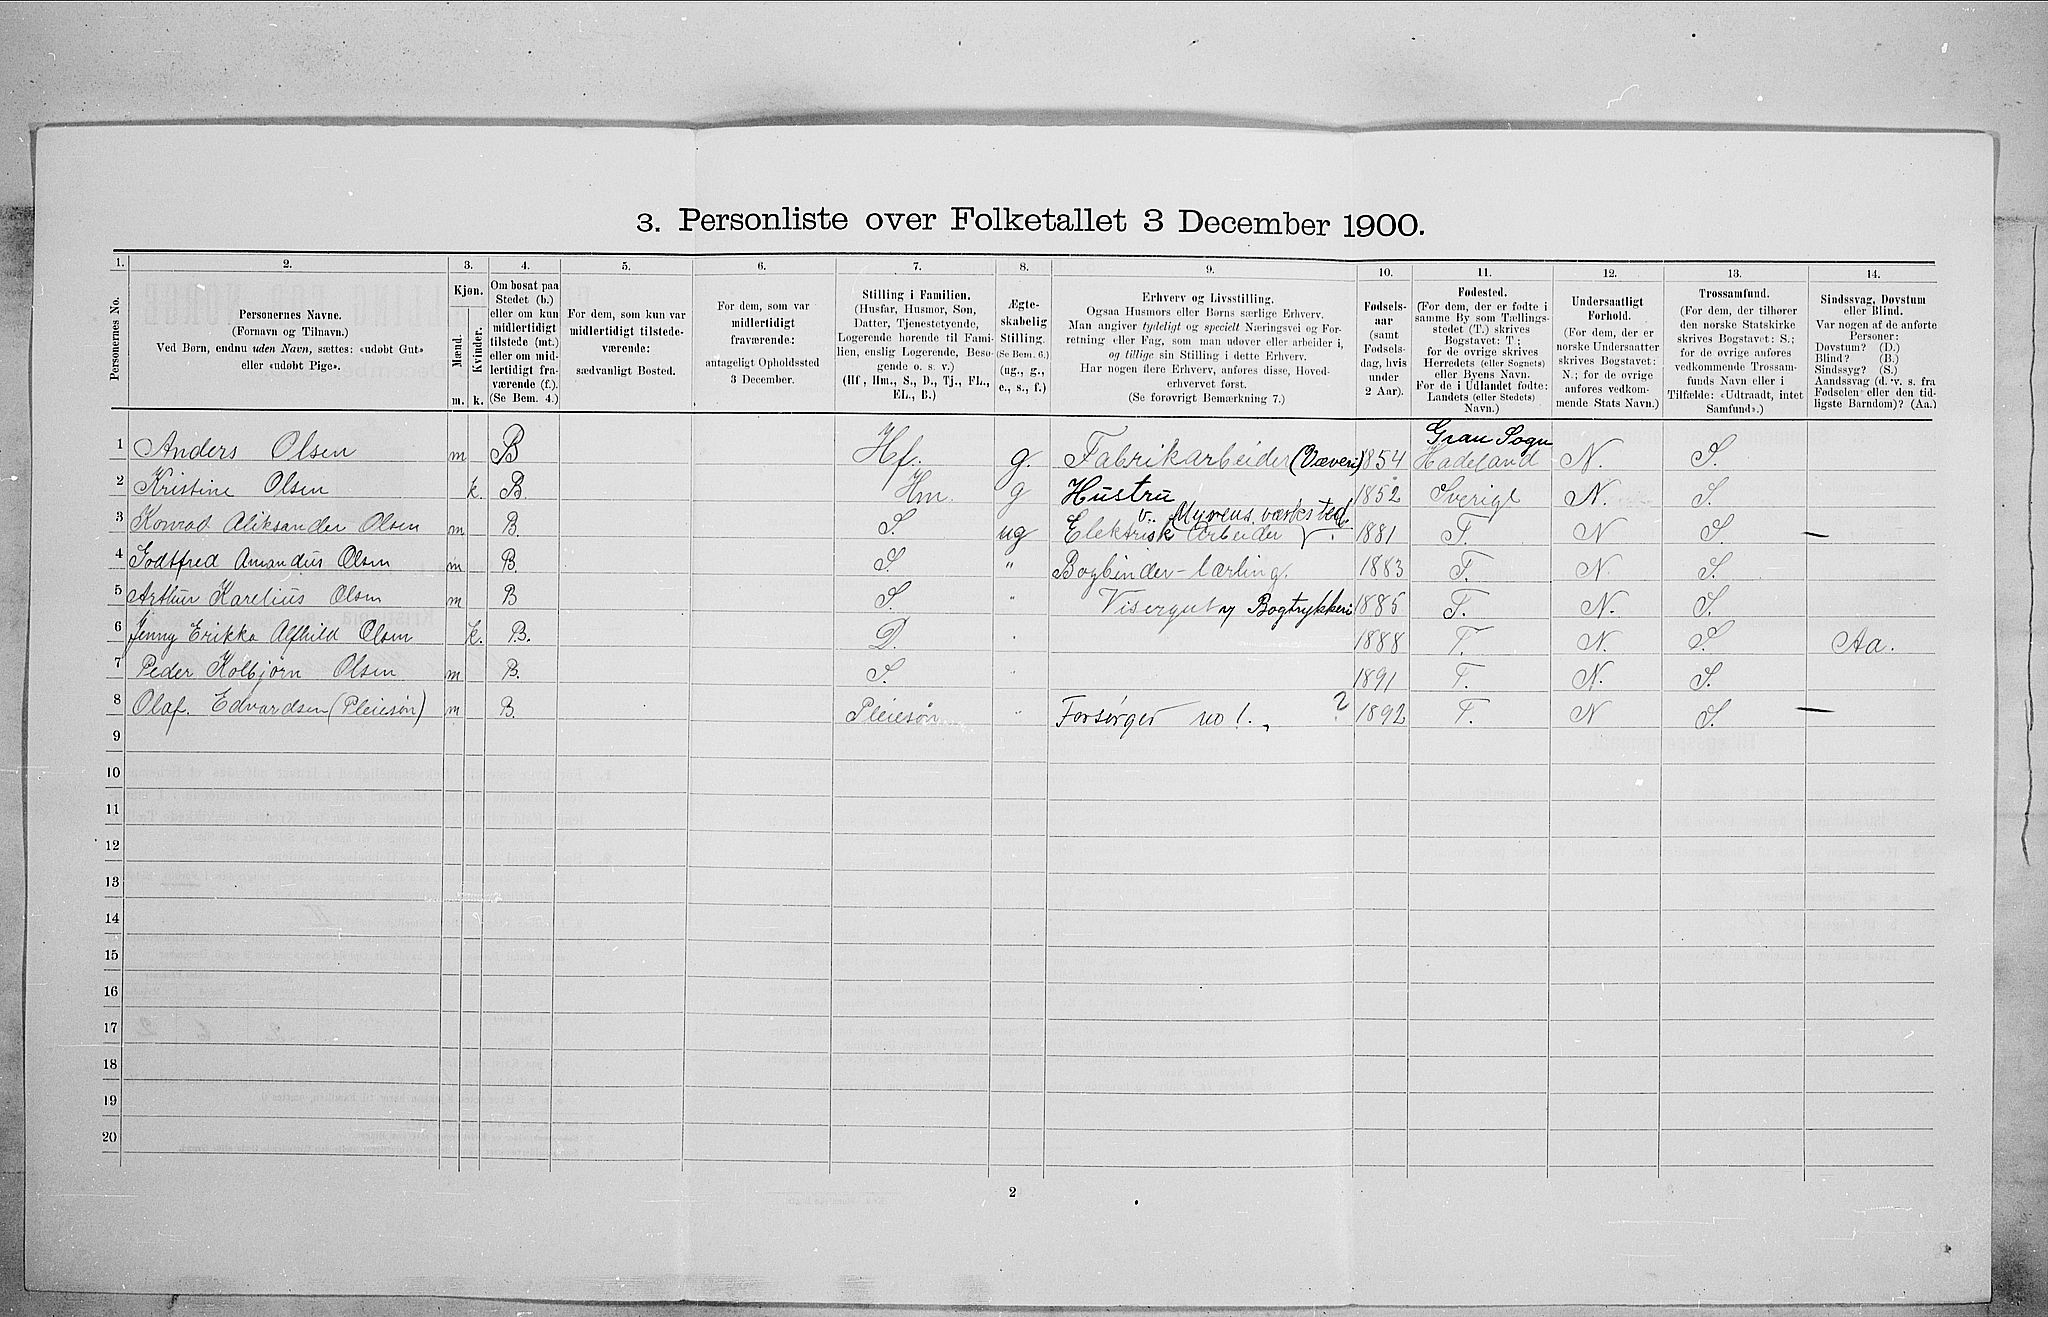 3. Personliste over Folketallet 3 December 1900.
1. 2. 3. 4. 5. 6. 7. 8. 9. 10. 11. 12. 13. 14.
Personernes No.
Personernes Navne.
(Fornavn og Tilnavn.)
Ved Børn, endnu uden Navn, sættes: «udøbt Gut»
eller «udøbt Pige».
Kjøn.
Mænd.
Kvinder.
m. k.
Om bosat paa
Stedet (b.)
eller om kun
midlertidigt
tilstede (mt.)
eller om mid-
lertidigt fra-
værende (f.).
(Se Bem. 4.)
For dem, som kun var
midlertidigt tilstede-
værende:
sædvanligt Bosted.
For dem, som var
midlertidigt
fraværende:
antageligt Opholdssted
3 December.
Stilling i Familien.
(Husfar, Husmor, Søn,
Datter, Tjenestetyende,
Logerende hørende til Fami-
lien, enslig Logerende, Besø-
gende o. s. v.)
(Hf, Hm., S., D., Tj., FL.,
EL., B.)
Ægte-
skabelig
Stilling.
(Se Bem. 6.)
(ug., g.,
e., s., f.)
Erhverv og Livsstilling.
Ogsaa Husmors eller Børns særlige Erhverv.
Man angiver tydeligt og specielt Næringsvei og For-
retning eller Fag, som man udøver eller arbeider i,
og tillige sin Stilling i dette Erhverv.
Har nogen flere Erhverv, anføres disse, Hoved-
erhvervet først.
(Se forøvrigt Bemærkning 7.)
Fødsels-
aar
(samt
Fødsels-
dag, hvis
under
2 Aar).
Fødested.
(For dem, der er fødte i
samme By som Tællings-
stedet (T.) skrives
Bogstavet: T;
for de øvrige skrives
Herredets (eller Sognets)
eller Byens Navn.
For de i Udlandet fødte:
Landets (eller Stedets)
Navn.)
Undersaatligt
Forhold.
(For dem, der er
norske Undersaatter
skrives Bogstavet:
N.; for de øvrige
anføres vedkom-
mende Stats Navn.)
Trossamfund.
(For dem, der tilhører
den norske Statskirke
skrives Bogstavet: S.;
for de øvrige anføres
vedkommende Trossam-
funds Navn eller i
Tilfælde: «Udtraadt, intet
Samfund».)
Sindssvag, Døvstum
eller Blind.
Var nogen af de anførte
Personer:
Døvstum? (D.)
Blind? (B.)
Sindssyg? (S.)
Aandssvag (d. v. s. fra
Fødselen eller den tid-
ligste Barndom)? (Aa.)
Gran Sogn
1 Anders Olsen m B Hf. g. Fabrikarbeider (Væveri) 1854 Hadeland N. S.
2 Kristine Olsen k. B. Hm. g Hustru 1852 Sverige N. S.
v. Myrens værksted.
3 Konrad Aliksander Olsen m B. S. ug Elektrisk Arbeider 1881 T. N S. —
4 Godtfred Amandus Olsen m B. S " Bogbinder-lærling. 1883 T. N. S.
5 Arthur Karelius Olsen m B S. " Visergut i Bogtrykkeri 1885 T. N. S.
6 Jenny Erikka Alfhild Olsen k. B. D. " 1888 T. N. S. Aa.
7 Peder Kolbjørn Olsen m B. S. " 1891 T. N. S.
8 Olaf. Edvardsen (Pleiesøn) m B. Pleiesøn " Forsørges no 1. ? 1892 T. N S. —
9
10
11
12
13
14
15
16
17
18
19
20
2